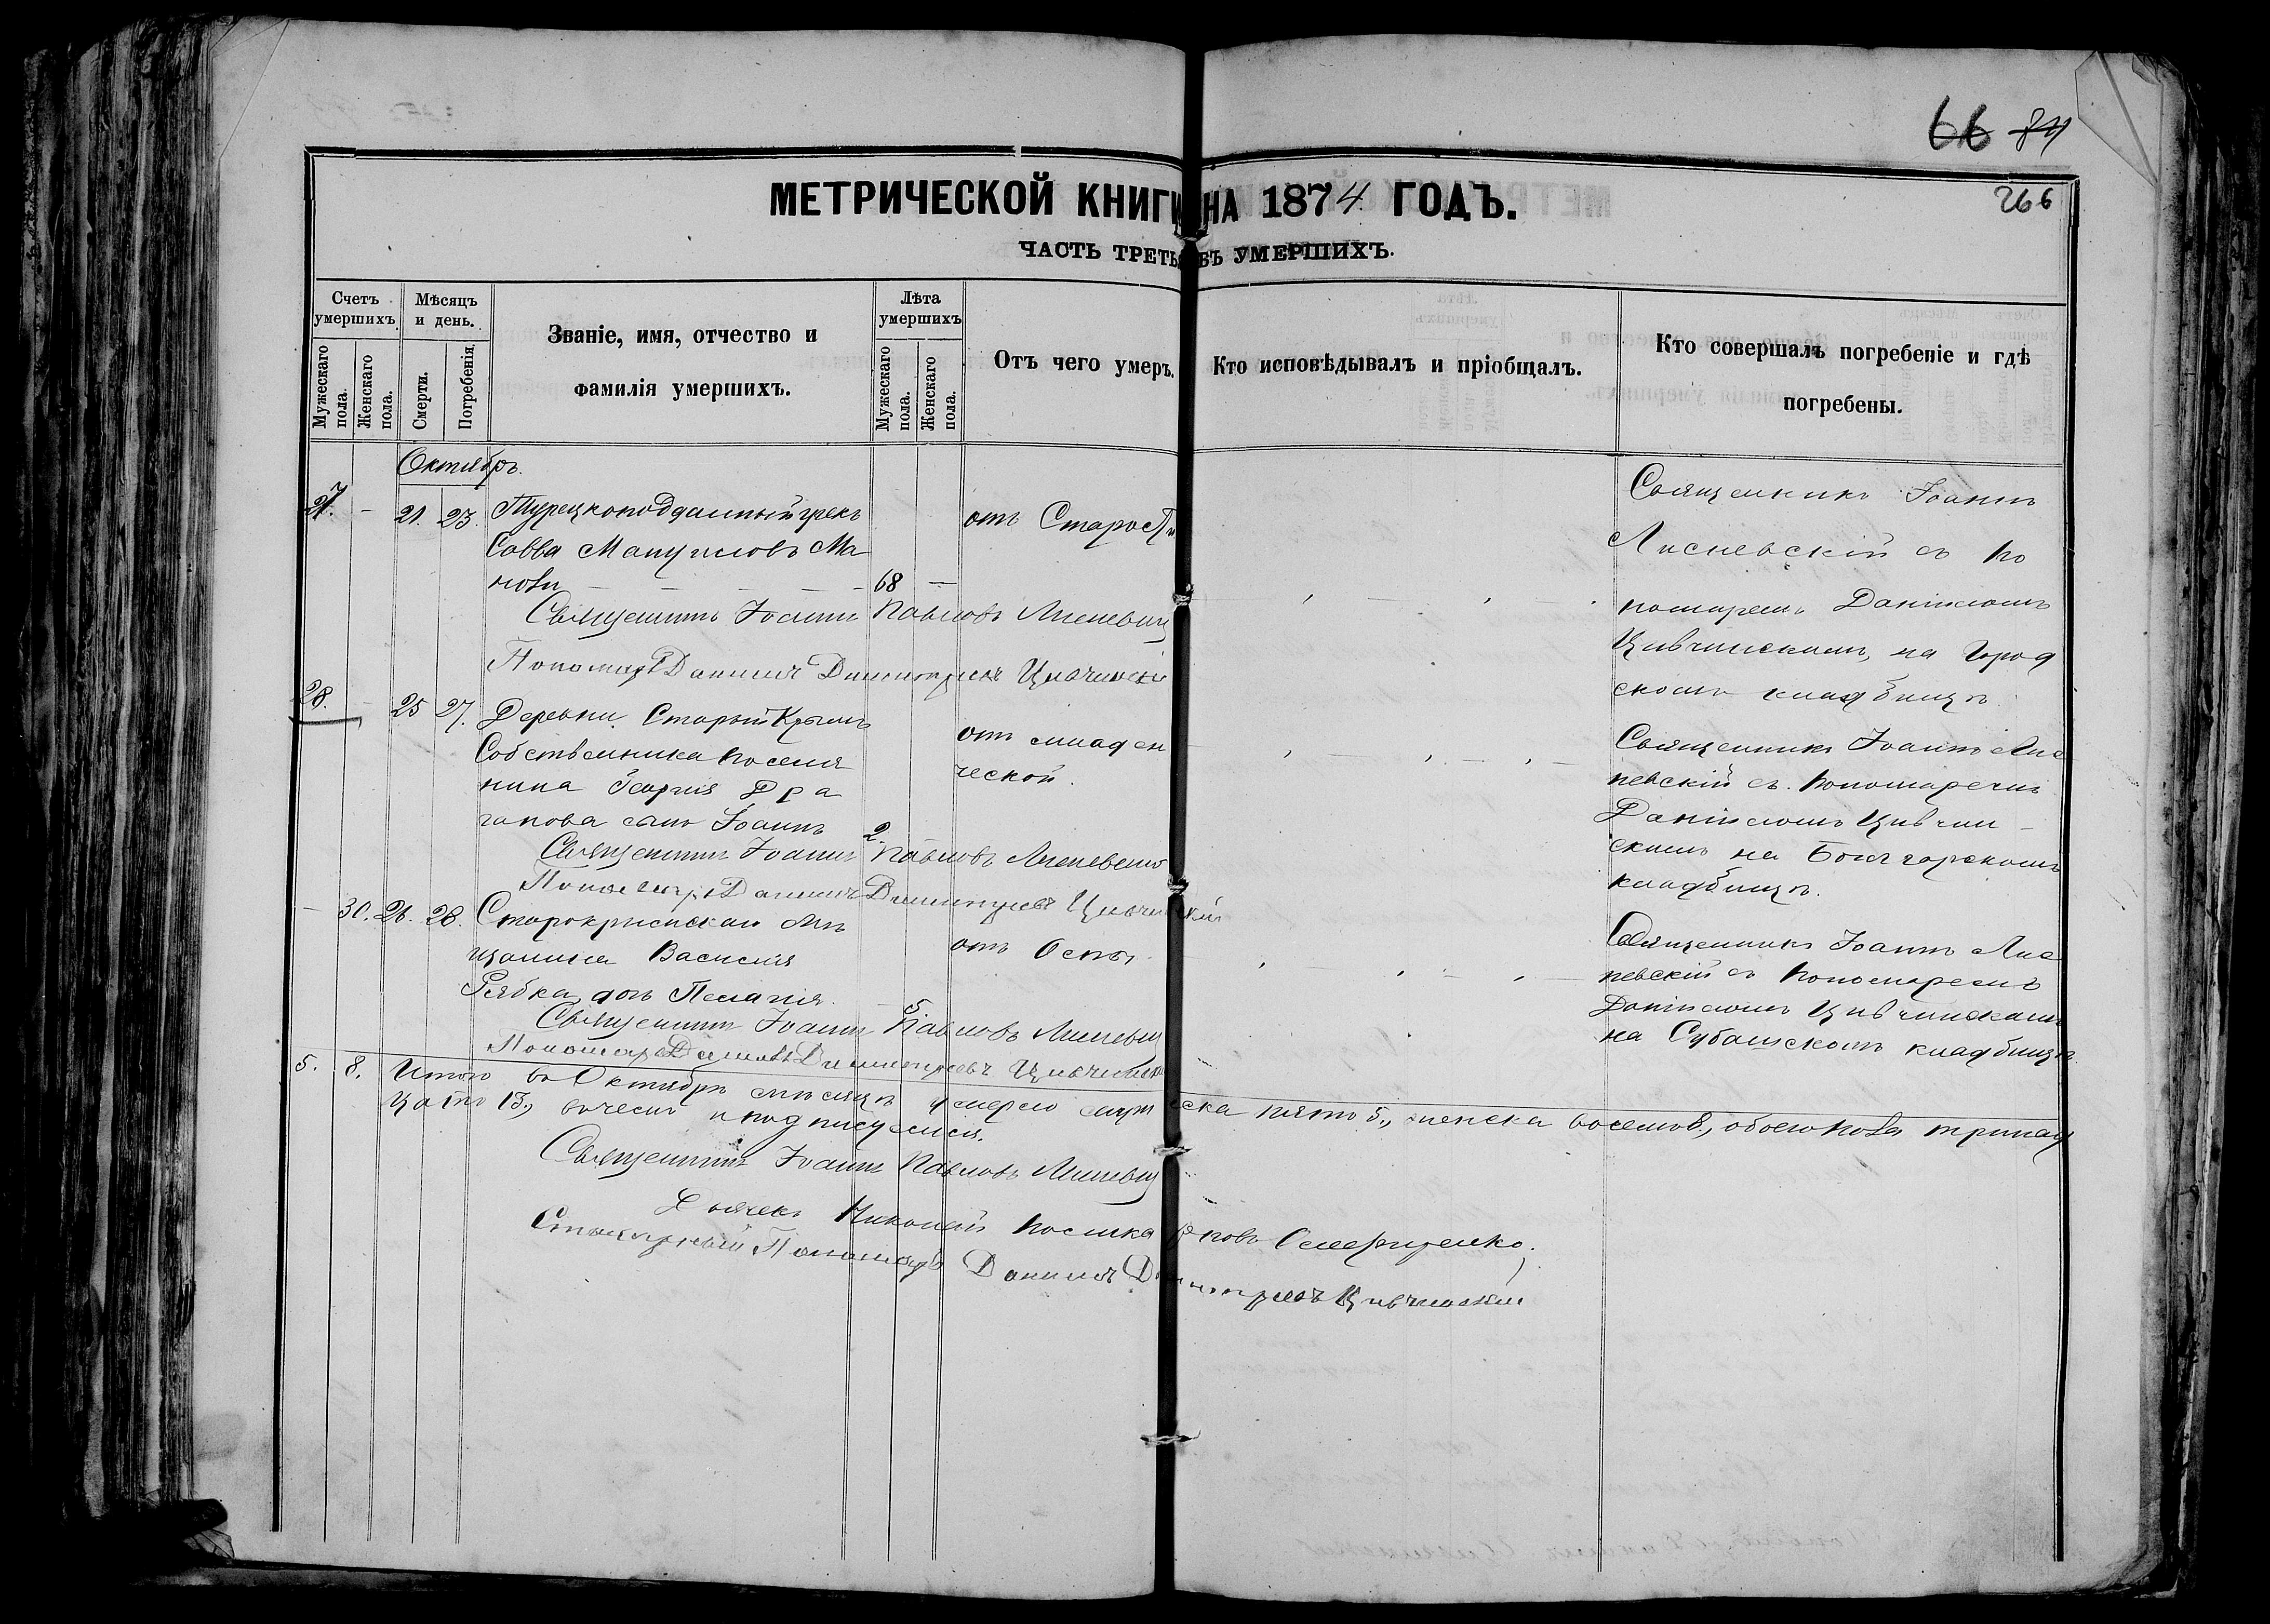 66 84
МЕТРИЧЕСКОЙ КНИГИ НА 1874 ГОДЪ.
266
ЧАСТЬ ТРЕТЬ БЪ УМЕРШИХЪ.
Счетъ умершихъ.
Мужескаго пола.
Женскаго пола.
Мѣсяцъ и день.
Смерти.
Погребенія.
Званіе, имя, отчество и
фамилія умершихъ.
Лѣта умершихъ
Мужескаго пола.
Женскаго пола.
Отъ чего умеръ.
Кто исповѣдывалъ и пріобщалъ.
Кто совершалъ погребеніе и гдѣ
погребены.
Октябрь.
27. - 21. 23. Турецкоподданный грекъ
Савва Мануиловъ Ма
68 —
отъ Старости
Священникъ Іоаннъ
Лисневскій съ по
номаремъ Даніиломъ
Цивчинскимъ, на Город
скомъ кладбищѣ.
Священникъ Іоаннъ Павловъ Лисневскій
Пономарь Даниилъ Димитріевъ Цивчинскій
28. 25 27. Деревни Старый Крымъ
Собственника поселя
нина Георгія Дра
ганова сынъ Іоаннъ
2.
отъ младен
ческой.
Священникъ Іоаннъ Лис
невскій съ пономаремъ
Даніиломъ Цивчин
скимъ на Болгарскомъ
кладбищѣ.
Священникъ Іоаннъ Павловъ Лисневскій
Пономарь Даниилъ Димитріевъ Цивчинскій
- 30. 26. 28. Старокрымскаго Мѣ
щанина Василія
Рябка дочь Пелагія.
5
отъ Оспы.
Священникъ Іоаннъ Лис
невскій съ пономаремъ
Даніиломъ Цивчинскимъ
на Субашскомъ кладбищѣ.
Священникъ Іоаннъ Павловъ Лисневскій
Пономарь Даниилъ Димитріевъ Цивчинскій
5. 8. Итого въ Октябрѣ мѣсяцѣ умерло мужеска пять 5., женска восемь 8., обоего пола тринад
цать 13., въ чемъ и подписуемся.
Священникъ Іоаннъ Павловъ Лисневскій
Дьячекъ Николай
Пономарь Даниилъ Димитріевъ Цивчинскій